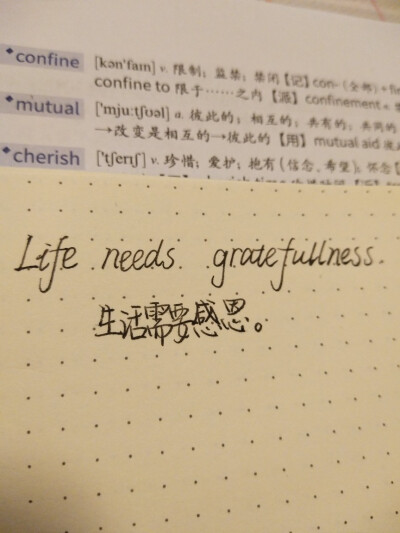 confine [kən'faɪn] v. 限制；监禁；禁闭【记】con-（全部）+ fin
confine to 限于……之内【派】confinement n.
mutual ['mjuːtʃʊəl] a. 彼此的；相互的；共有的；共同的
→改变是相互的→彼此的【用】mutual aid 彼此
cherish ['tʃerɪʃ] v. 珍惜；爱护；抱有（信念、希望）；怀念【
Life needs gratefullness.
生活需要感恩。